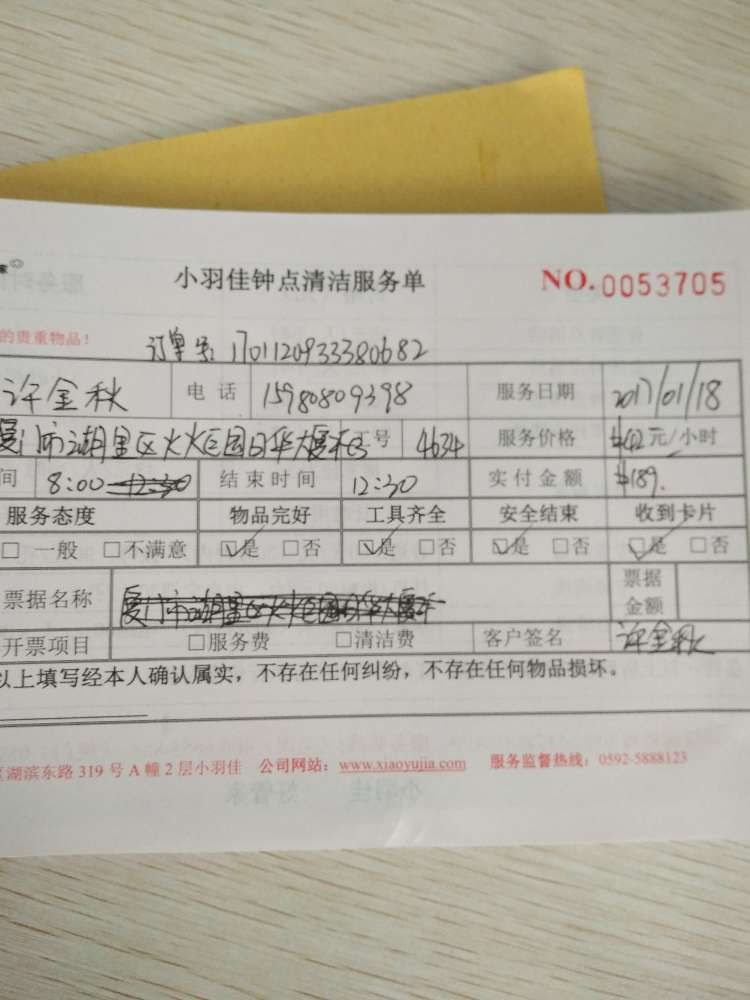 家
小羽佳钟点清洁服务单 NO.0053705
的贵重物品!
订单号: 170112093338 0682
许金秋 电话 15980809398 服务日期 2017/01/18
厦门市湖里区火炬园日华大厦 工号 4634 服务价格 42元/小时
间 8:00 12:30 结束时间 12:30 实付金额 ¥189.
服务态度 物品完好 工具齐全 安全结束 收到卡片
□一般 □不满意 ☑是 □否 ☑是 □否 ☑是 □否 ☑是 □否
票据名称 厦门市湖里区火炬园日华大厦 票据金额
开票项目 □服务费 □清洁费 客户签名 许金秋
以上填写经本人确认属实，不存在任何纠纷，不存在任何物品损坏。
区湖滨东路 319 号 A 幢 2 层小羽佳 公司网站：www.xiaoyujia.com 服务监督热线：0592-5888123